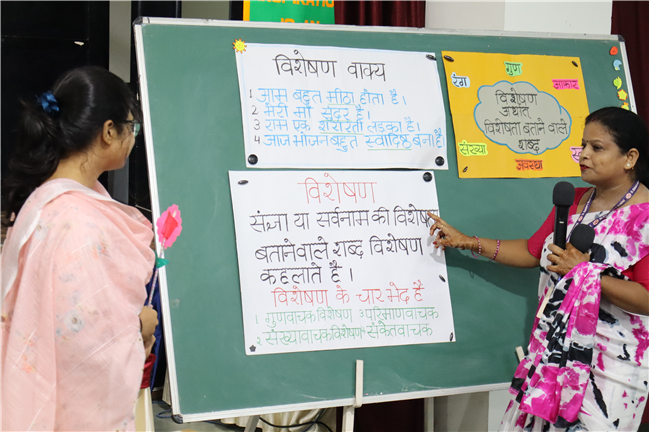 विशेषण वाक्य
1 आम बहुत मीठा होता है।
2 मेरी माँ सुंदर है।
3 राम एक शरारती लड़का है।
4 आज भोजन बहुत स्वादिष्ट बना है
रंग
गुण
आकार
विशेषण
अर्थात
विशेषता बताने वाले
शब्द
संख्या
अवस्था
विशेषण
संज्ञा या सर्वनाम की विशेषता
बताने वाले शब्द विशेषण
कहलाते है।
विशेषण के चार भेद है
1 गुणवाचक विशेषण 3 परिमाणवाचक
2 संख्यावाचक विशेषण 4 संकेतवाचक